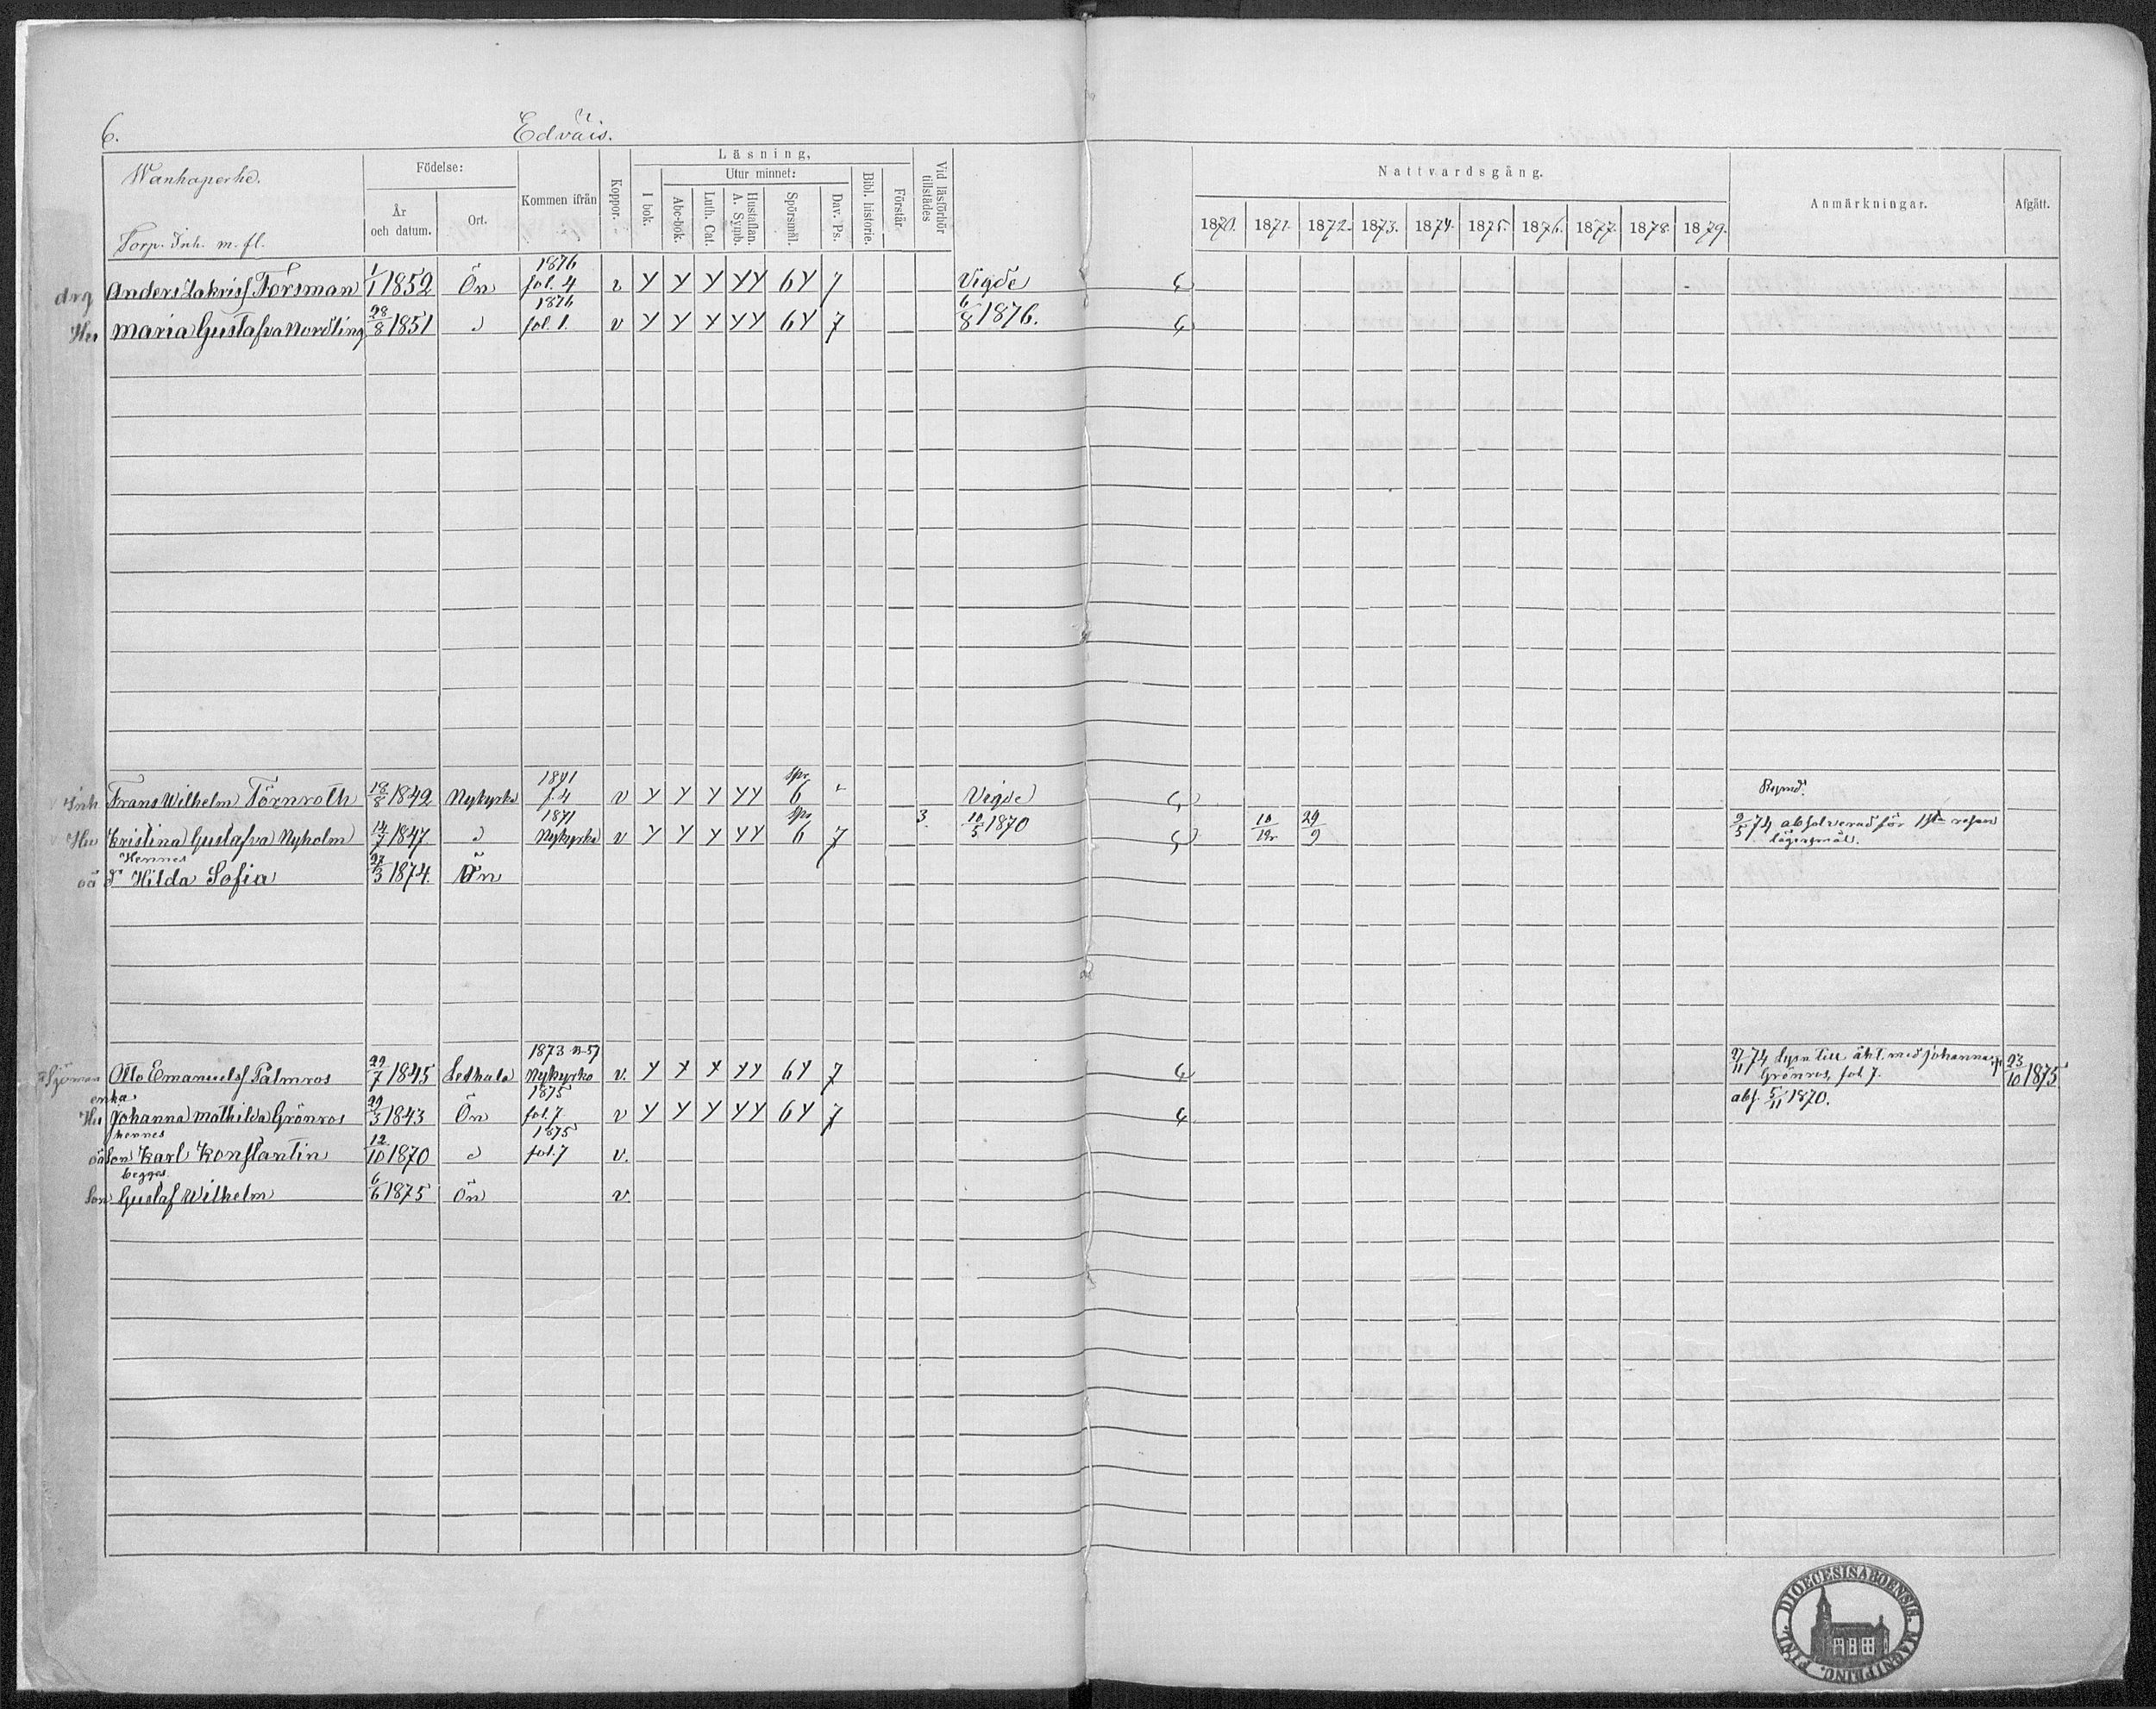 6.
Edväis.
Wanhaperhe.
Torp. Inh. m. fl.
Födelse:
År och datum.
Ort.
Kommen ifrån
Koppor.
Läsning,
I bok.
Utur minnet:
Abc-bok.
Luth. Cat.
Hustaflan. A. Symb.
Spörsmål.
Dav. Ps.
Bibl. historie.
Förstår.
Vid läsförhör tillstädes
Nattvardsgång.
1870. 1871. 1872. 1873. 1874. 1875. 1876. 1877. 1878. 1879.
Anmärkningar.
Afgått.
drg Anders Zakriss Forsman 1/1 1852 Ön 1876 fol. 4 v Y Y Y YY 6Y 7 Vigde
Hu Maria Gustafva Nordling 28/8 1851 d 1876 fol. 1. v Y Y Y YY 6Y 7 6/8 1876.
Inh Frans Wilhelm Törnroth 18/8 1842 Nykyrka 1871 f. 4 v Y Y Y YY spr 6 Vigde
Hu Kristina Gustafva Nyholm 14/7 1847 d 1871 Nykyrka v Y Y Y YY spr 6 7 3. 10/5 1870 29/9 9/5 74 absolverad för 1sta resan lägersmål.
oä Hennes Dr Hilda Sofia 27/3 1874. Ön
Sjöman Otto Emanuelss Palmros 22/7 1845 Lethala 1873 n 57 Nykyrko v. Y Y Y YY 6Y 7 74 Lysn till äkt. med Johanna Grönros, fol 7. 23/10 1875
enka Hu Johanna Mathilda Grönros 29/3 1843 Ön 1875 fol. 7 v Y Y Y YY 6Y 7 abs. 5/11 1870.
oä hennes Son Karl Konstantin 12/10 1870 d 1875 fol. 7 v.
Son begges Gustaf Wilhelm 6/6 1875 Ön v.
DIOECESIS ABOENSIS. MAGNI PRINC. FINL.